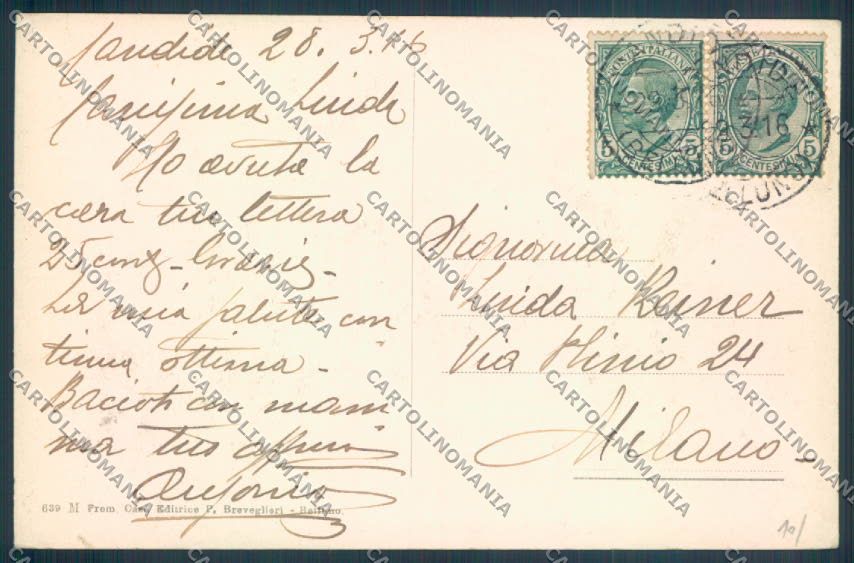 Candide 28.3.16
Carissima Linda
Ho avuta la
cara tua lettera
25 Grazie -
La mia salute con
tinua ottima -
Bacioti con mam
ma tuo
Antonio
639 M Prem Casa Editrice P. Breveglieri - Belluno
POSTE ITALIANE
POSTE ITALIANE
5 CENTESIMI 5
5 CENTESIMI 5
3.16
Signorina
Linda Rainer
Via 24
Milano -
10/
CARTOLINOMANIA